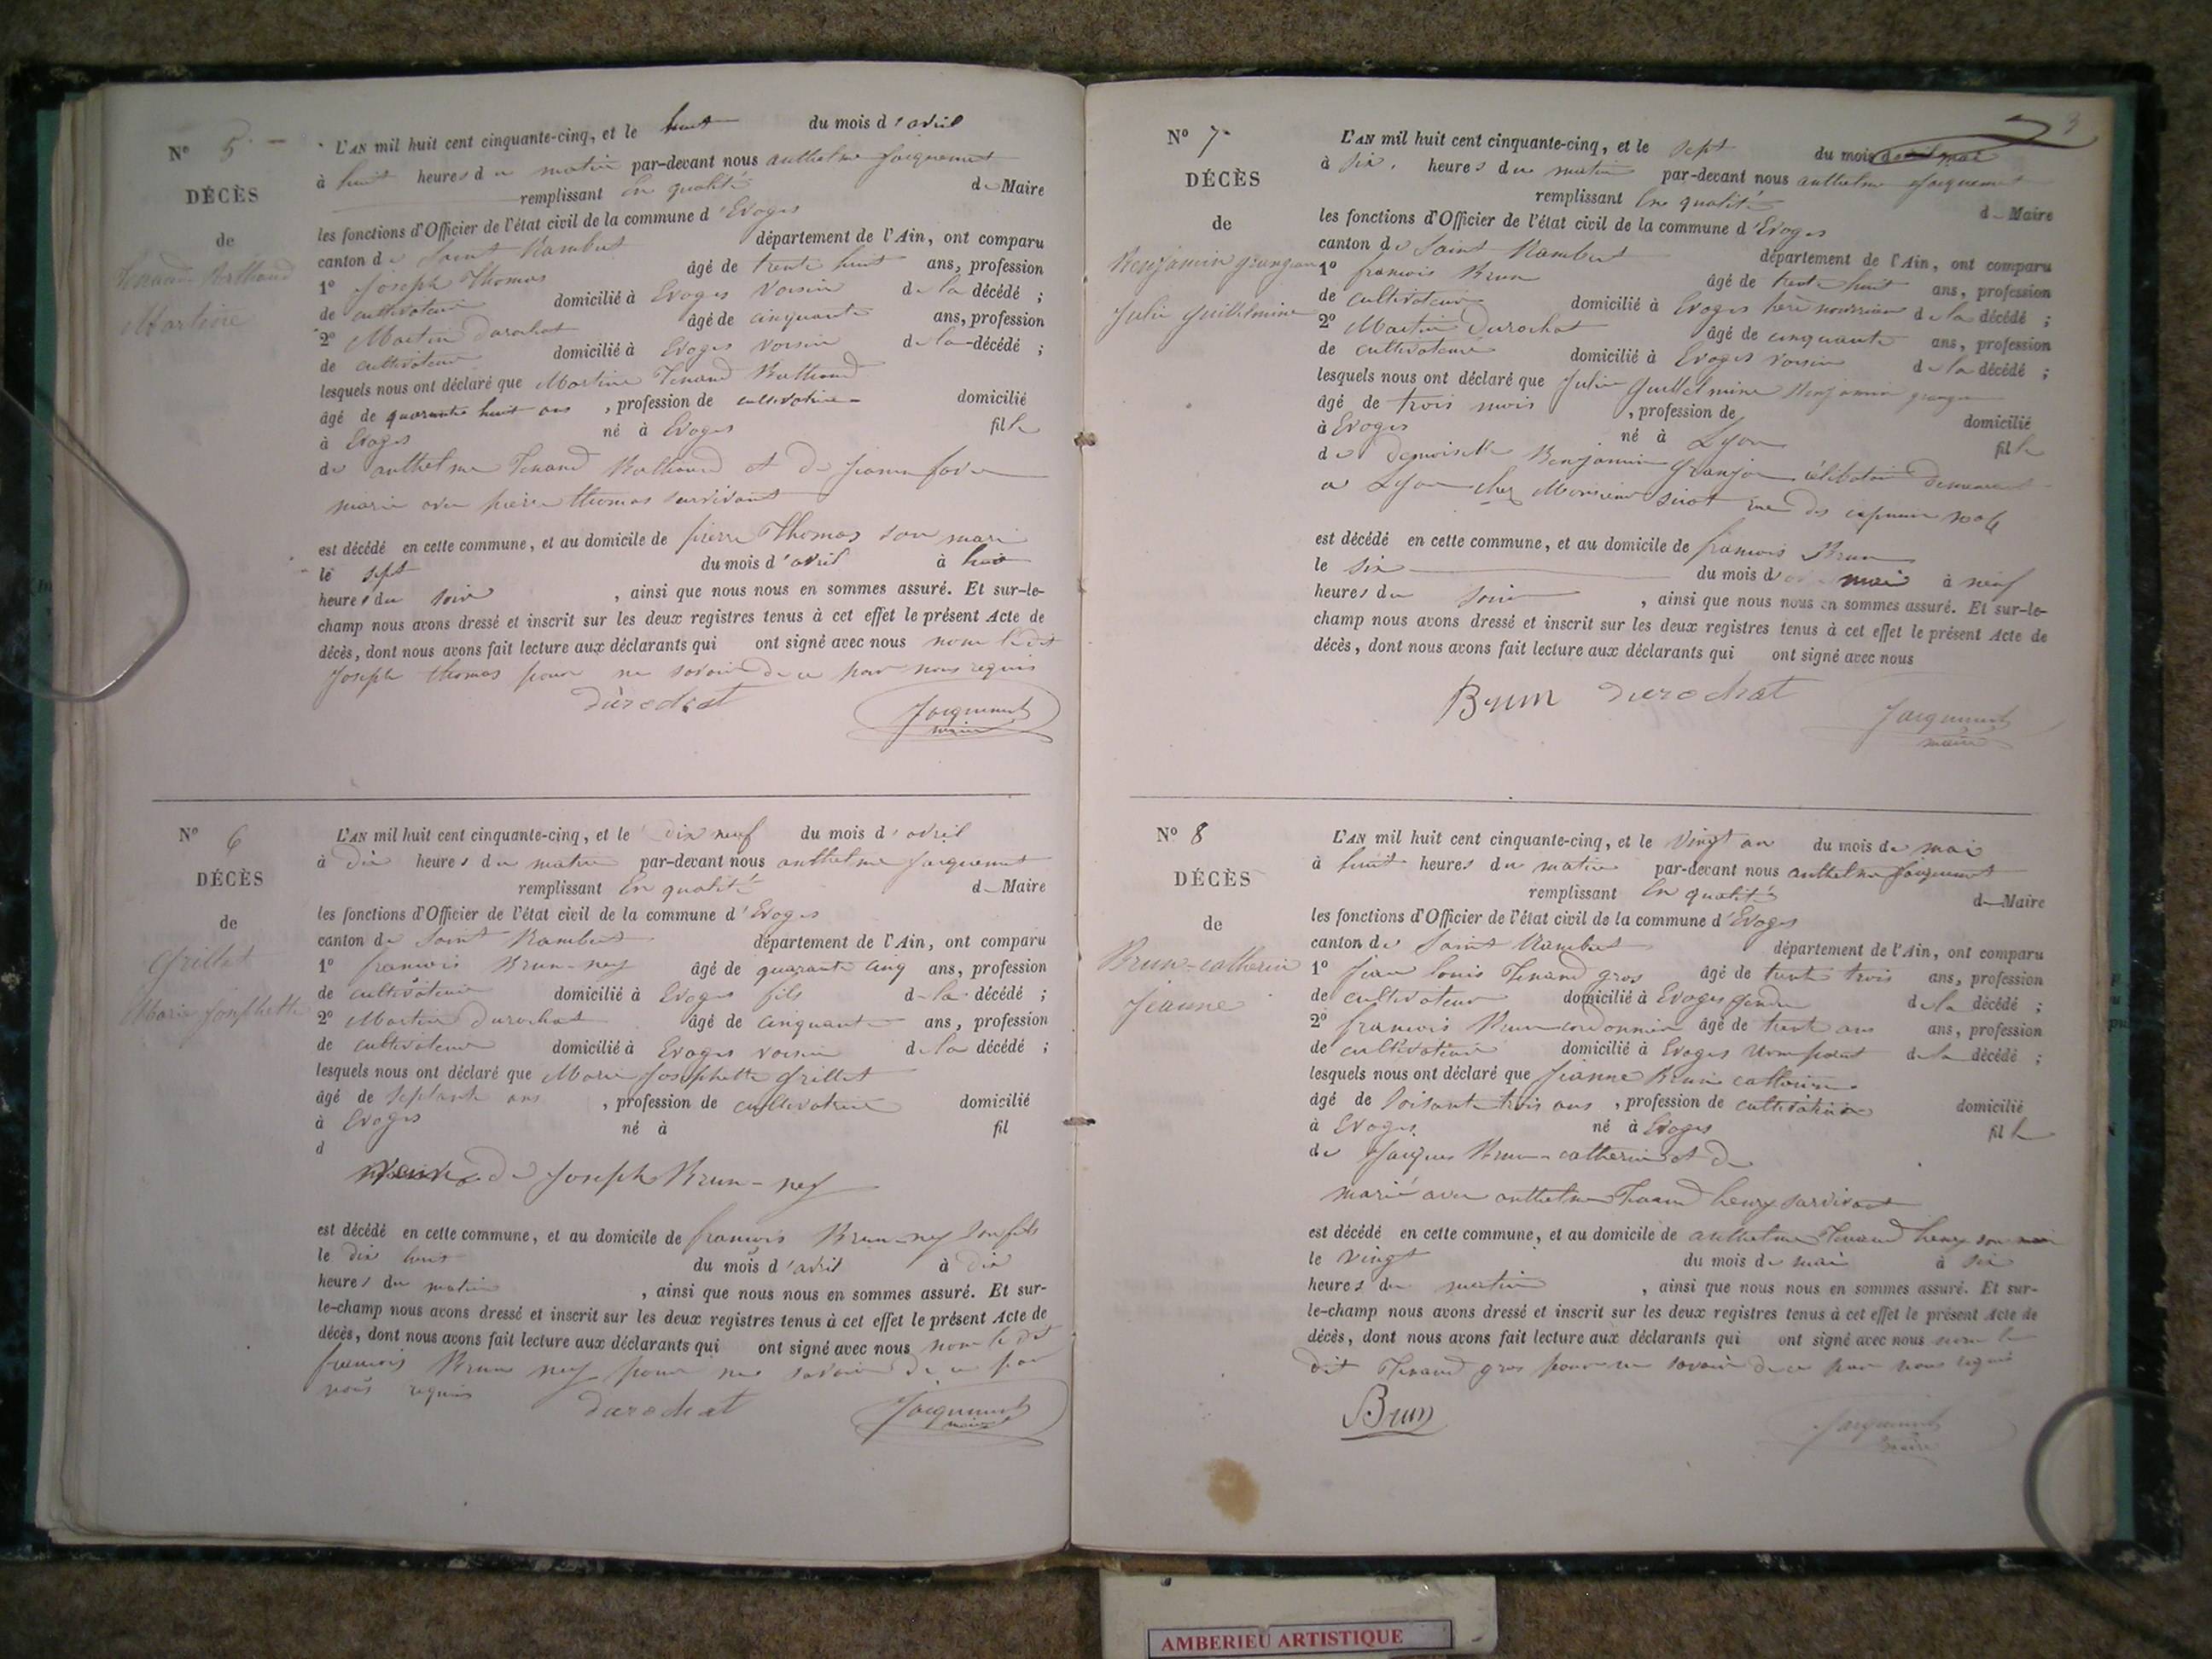 N° 5
DÉCÈS
de
Tenand-Berthaud
Martine
L'AN mil huit cent cinquante-cinq, et le huit du mois d'avril
à huit heures du matin par-devant nous anthelme Jacquemet
remplissant En qualité de Maire
les fonctions d'Officier de l'état civil de la commune d'Evoges
canton de Saint Rambert département de l'Ain, ont comparu
1° Joseph Thomas âgé de trente huit ans, profession
de cultivateur domicilié à Evoges Voisin de la décédé ;
2° Martin Durochat âgé de cinquante ans, profession
de cultivateur domicilié à Evoges voisin de la décédé ;
lesquels nous ont déclaré que Martine Tenand Berthaud
âgé de quarante huit ans , profession de cultivatrice domicilié
à Evoges né à Evoges fille
de anthelme Tenand Berthaud et de jeanne
marié avec pierre thomas survivant
est décédé en cette commune, et au domicile de pierre Thomas son mari
le sept du mois d'avril à
heures du soir , ainsi que nous nous en sommes assuré. Et sur-le-
champ nous avons dressé et inscrit sur les deux registres tenus à cet effet le présent Acte de
décès, dont nous avons fait lecture aux déclarants qui ont signé avec nous non ledit
Joseph thomas pour ne savoir de ce par nous requis
durochat Jacquemet
maire
N° 6
DÉCÈS
de
Grillet
Marie Josephette
L'AN mil huit cent cinquante-cinq, et le dix neuf du mois d'avril
à dix heures du matin par-devant nous anthelme Jacquemet
remplissant En qualité de Maire
les fonctions d'Officier de l'état civil de la commune d'Evoges
canton de Saint Rambert département de l'Ain, ont comparu
1° francois Brun-ney âgé de quarante cinq ans, profession
de cultivateur domicilié à Evoges fils de la décédé ;
2° Martin Durochat âgé de cinquante ans, profession
de cultivateur domicilié à Evoges voisin de la décédé ;
lesquels nous ont déclaré que Marie Josephette Grillet
âgé de septante ans , profession de cultivatrice domicilié
à Evoges né à fil
d
veuve de Joseph Brun-ney
est décédé en cette commune, et au domicile de francois Brun-ney son fils
le dix huit du mois d'avril à dix
heures du matin , ainsi que nous nous en sommes assuré. Et sur-
le-champ nous avons dressé et inscrit sur les deux registres tenus à cet effet le présent Acte de
décès, dont nous avons fait lecture aux déclarants qui ont signé avec nous non le dit
francois Brun ney pour ne savoir de ce par
nous requis
durochat Jacquemet
maire
3
N° 7
DÉCÈS
de
Benjamin
Julie guillelmine
L'AN mil huit cent cinquante-cinq, et le sept du mois de mai
à six heures du matin par-devant nous anthelme Jacquemet
remplissant En qualité de Maire
les fonctions d'Officier de l'état civil de la commune d'Evoges
canton de Saint Rambert département de l'Ain, ont comparu
1° francois Brun âgé de trente huit ans, profession
de cultivateur domicilié à Evoges père nourricier de la décédé ;
2° Martin Durochat âgé de cinquante ans, profession
de cultivateur domicilié à Evoges voisin de la décédé ;
lesquels nous ont déclaré que Julie guillelmine Benjamin
âgé de trois mois , profession de domicilié
à Evoges né à Lyon fille
de demoiselle Benjamin Granjon célibataire demeurant
a Lyon chez Monsieur rue des
est décédé en cette commune, et au domicile de francois Brun
le six du mois de mai à neuf
heures du soir , ainsi que nous nous en sommes assuré. Et sur-le-
champ nous avons dressé et inscrit sur les deux registres tenus à cet effet le présent Acte de
décès, dont nous avons fait lecture aux déclarants qui ont signé avec nous
Brun durochat Jacquemet
maire
N° 8
DÉCÈS
de
Brun-catherin
Jeanne
L'AN mil huit cent cinquante-cinq, et le vingt un du mois de mai
à huit heures du matin par-devant nous anthelme Jacquemet
remplissant En qualité de Maire
les fonctions d'Officier de l'état civil de la commune d'Evoges
canton de Saint Rambert département de l'Ain, ont comparu
1° Jean louis Tenand gros âgé de trente trois ans, profession
de cultivateur domicilié à Evoges gendre de la décédé ;
2° francois Brun cordonnier âgé de trente ans ans, profession
de cultivateur domicilié à Evoges non parent de la décédé ;
lesquels nous ont déclaré que Jeanne Brun catherin
âgé de soisante trois ans , profession de cultivatrice domicilié
à Evoges né à Evoges fille
de Jacques Brun-catherin et de
marié avec anthelme Tenand henry survivant
est décédé en cette commune, et au domicile de anthelme Tenand henry son mari
le vingt du mois de mai à six
heures du matin , ainsi que nous nous en sommes assuré. Et sur-
le-champ nous avons dressé et inscrit sur les deux registres tenus à cet effet le présent Acte de
décès, dont nous avons fait lecture aux déclarants qui ont signé avec nous non le
dit Tenand gros pour ne savoir de ce par nous requis
Brun Jacquemet
maire
AMBERIEU ARTISTIQUE